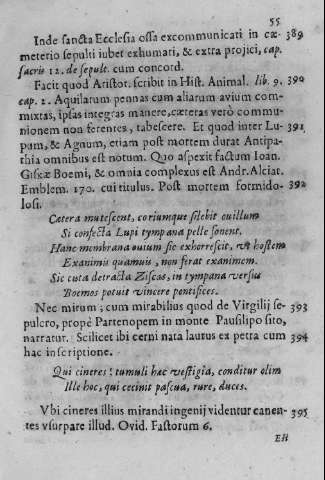 55
Inde sancta Ecclesia ossa excommunicati in cæ- 389
meterio sepulti iubet exhumari, & extra projici, cap.
sacris 12. de sepult. cum concord.
Facit quod Aristot. scribit in Hist. Animal. lib. 9. 390
cap. 1. Aquilarum pennas cum aliarum avium com-
mixtas, ipsas integras manere, cæteras verò commu-
nionem non ferentes, tabescere. Et quod inter Lu- 391
pum, & Agnum, etiam post mortem durat Antipa-
thia omnibus est notum. Quo aspexit factum Ioan.
Giskæ Boemi, & omnia complexus est Andr. Alciat.
Emblem. 170. cui titulus. Post mortem formido- 392
losi.
Cætera mutescent, coriumque silebit ouillum
Si confecta Lupi tympana pelle sonent.
Hanc membrana ouium sic exhorrescit, vt hostem
Exanimis quamuis, non ferat exanimem.
Sic cuta detracta Ziscas, in tympana versus
Boemos potuit vincere pontifices.
Nec mirum; cum mirabilius quod de Virgilij se- 393
pulcro, propè Partenopem in monte Pausilipo sito,
narratur. Scilicet ibi cerni nata lautus ex petra cum 394
hac inscriptione.
Qui cineres? tumuli hæc vestigia, conditur olim
Ille hoc, qui cecinit pascua, rure, duces.
Vbi cineres illius mirandi ingenij videntur canen- 395
tes vsurpare illud. Ovid. Fastorum 6.
EH